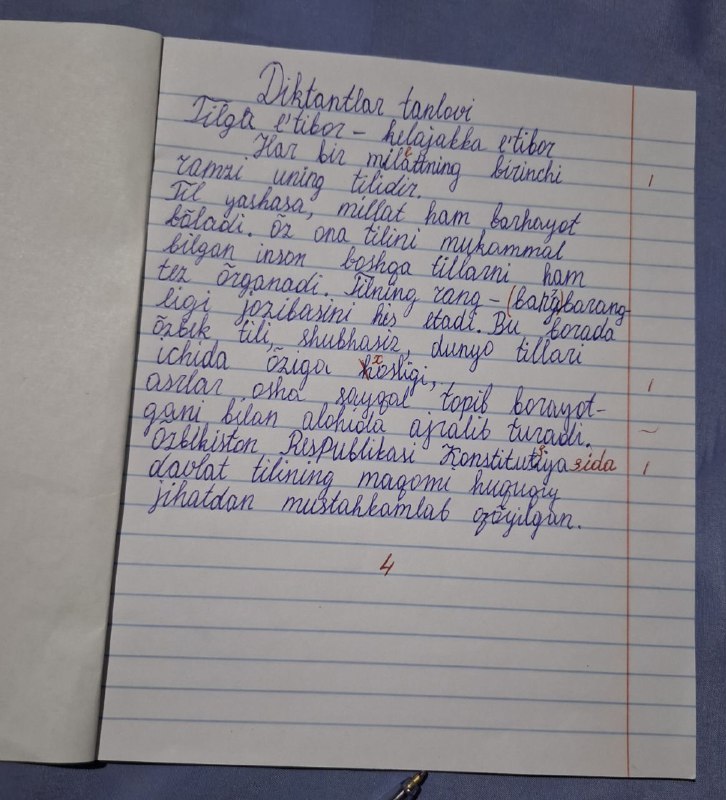 Diktantlar tanlovi
Tilga e'tibor – kelajakka e'tibor
Har bir milattning birinchi
ramzi uning tilidir.
Til yashasa, millat ham barhayot
bõladi. õz ona tilini mukammal
bilgan inson boshga tillarni ham
tez õrganadi. Tilning rang – (barg) barang-
ligi jozibasini his etadi. Bu borada
õzbek tili, shubhasiz, dunyo tillari
ichida õziga xosligi,
asrlar osha sayqal topib borayot-
gani bilan alohida ajralib turadi.
Õzbekiston Respublikasi Konstitutsiyasida
davlat tilining maqomi huquqiy
jihatdan mustahkamlab qõyilgan.
4